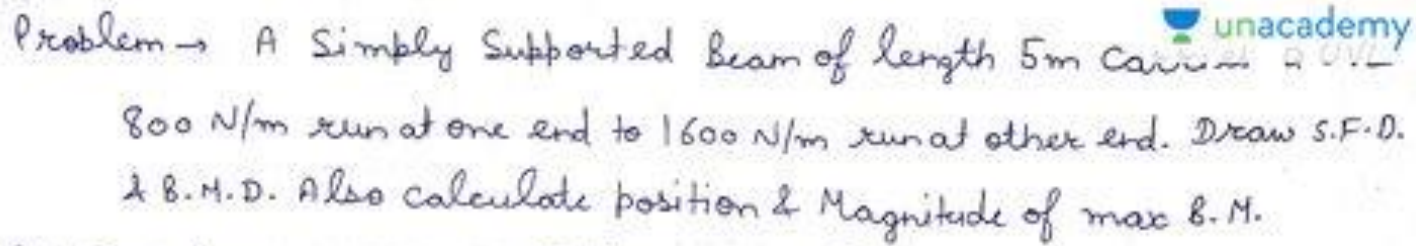 unacademy
Problem → A Simply Supported Beam of length 5m
800 N/m run at one end to 1600 N/m run at other end. Draw S.F.D.
& B.M.D. Also calculate position & Magnitude of max B.M.